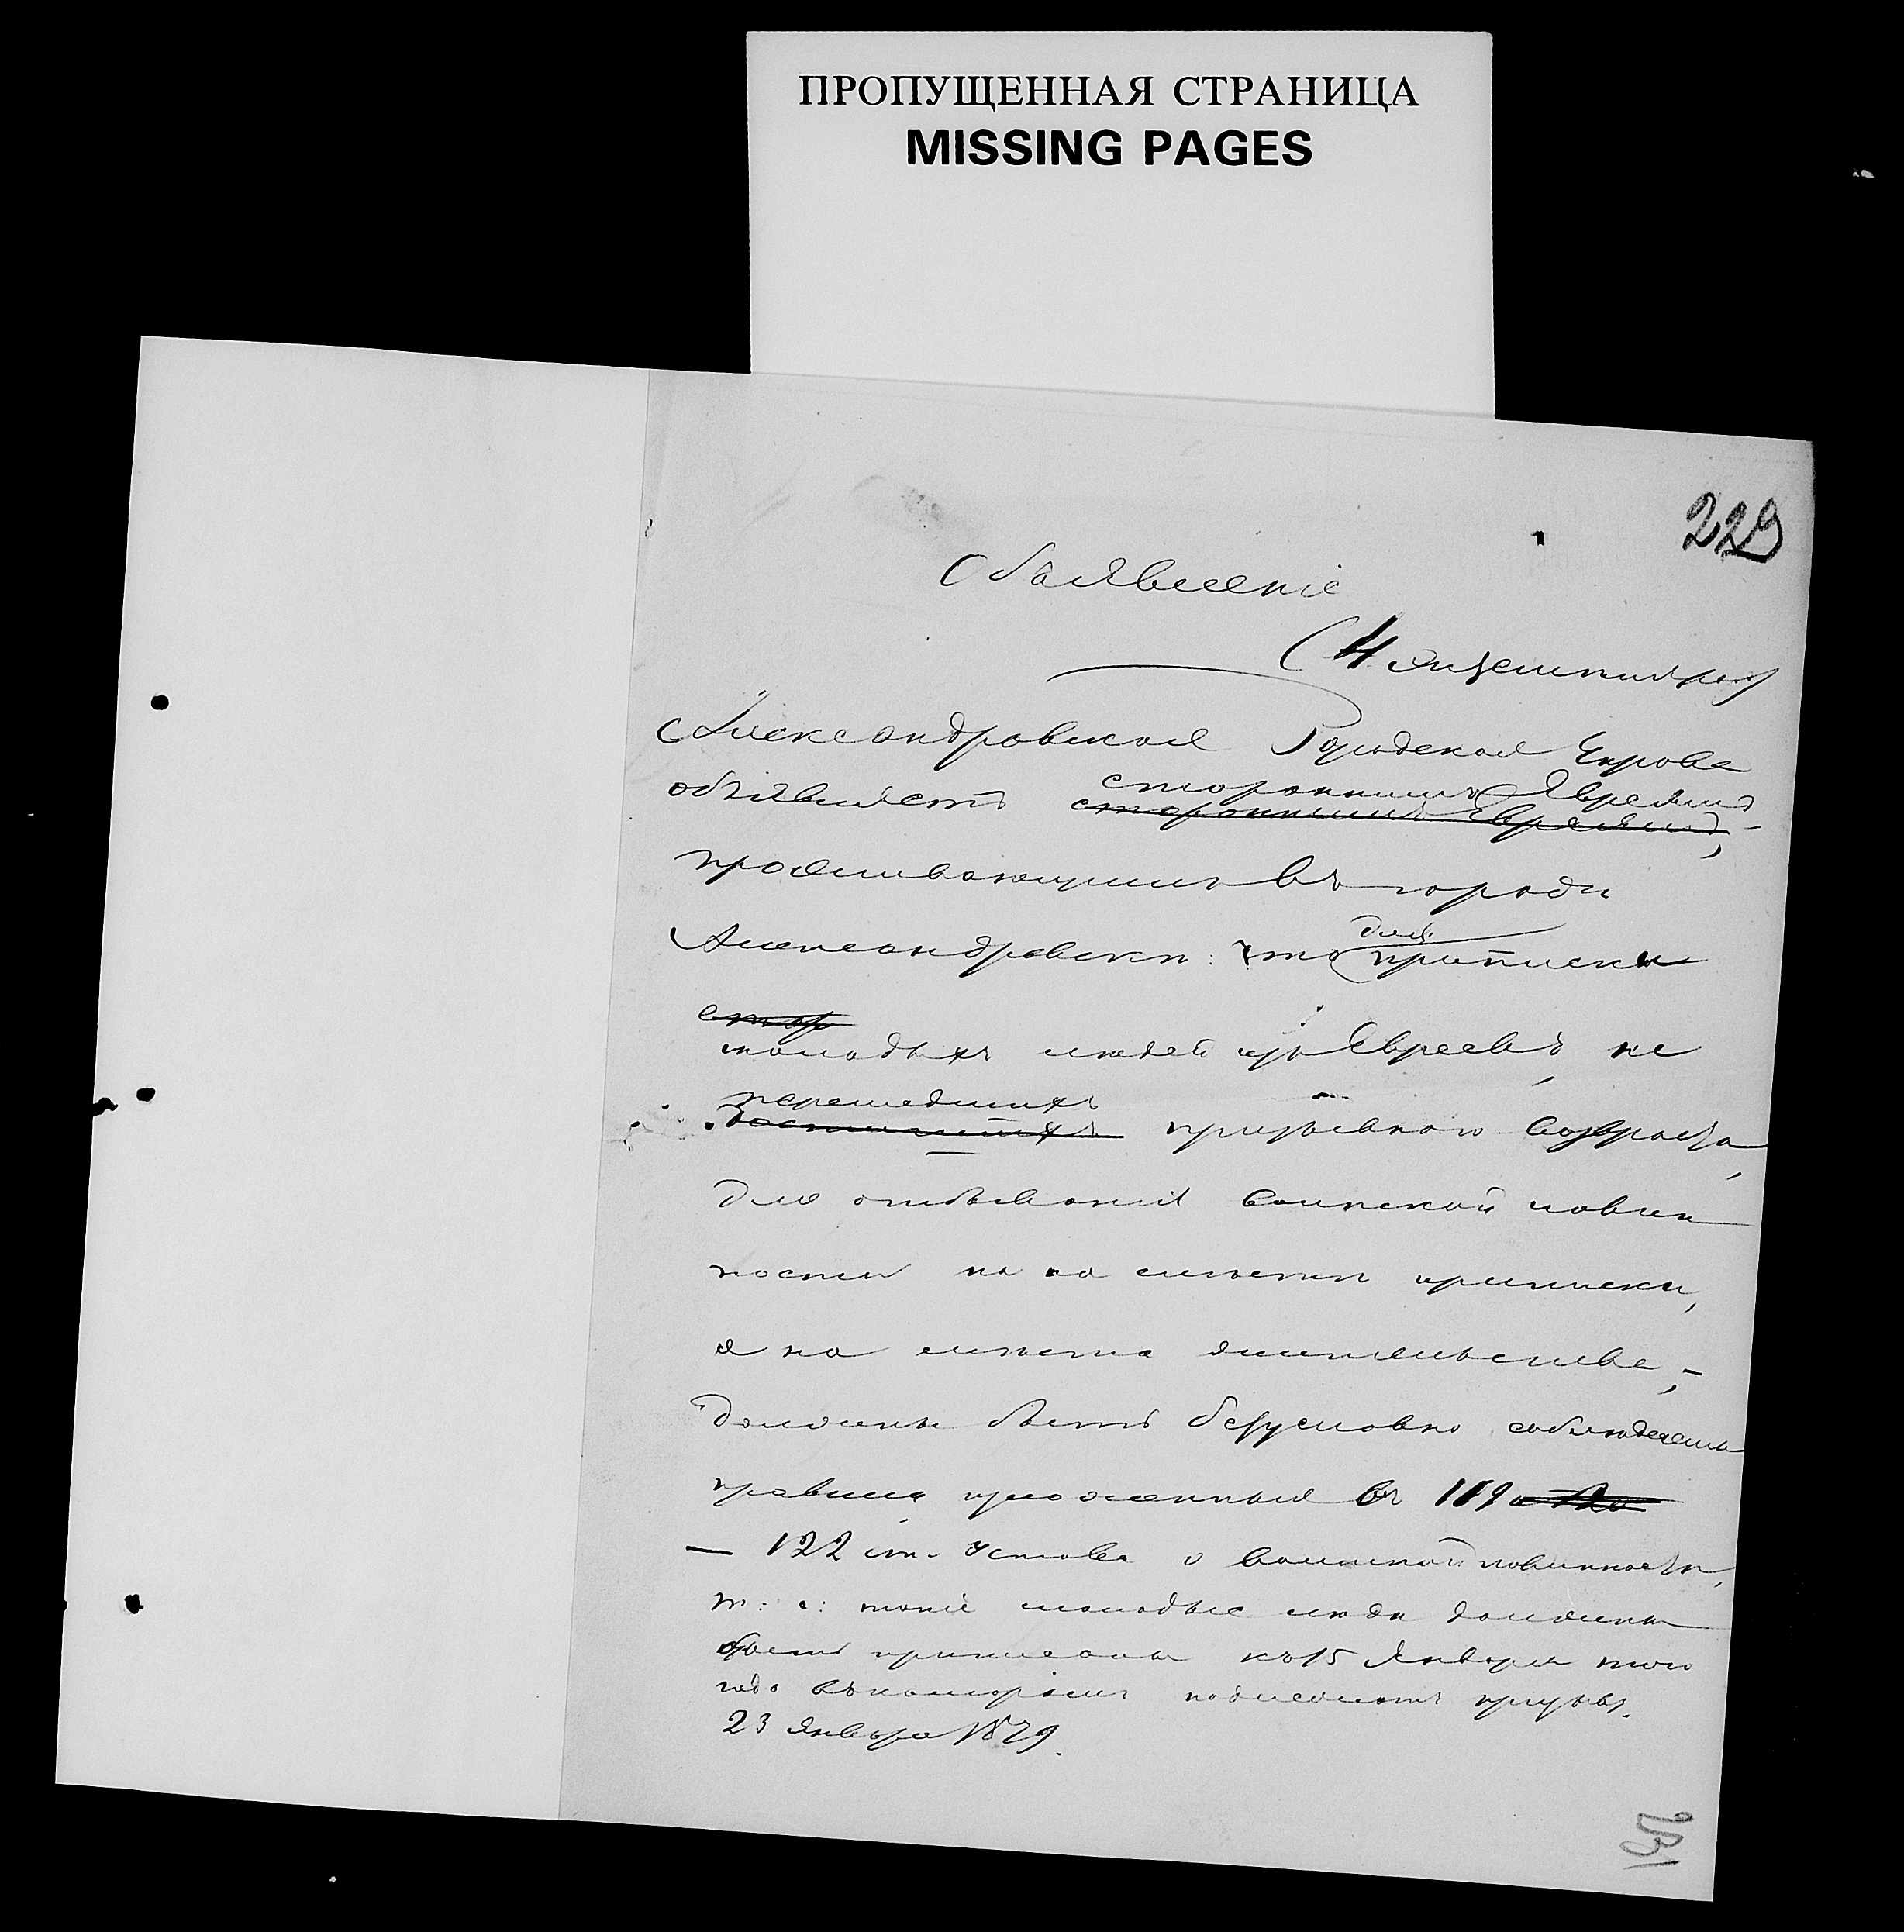 ПРОПУЩЕННАЯ СТРАНИЦА
MISSING PAGES
229
Объявленіе
(4 экземпляра)
Александровская Городская Управа
объявляетъ стороннимъ Евреямъ
стороннимъ Евреямъ,
проживающимъ въ городѣ
Александровскѣ: что для приписки
стор
молодыхъ людей изъ Евреевъ, не
перешедшихъ
достигшихъ призывного возраста,
для отбыванія воинской повин
ности не на мѣстѣ приписки,
а на мѣстѣ жительства,-
должны быть безусловно соблюдены
правила изложенныя въ 119
— 122 ст. Устава о воинской повинности,
т: е: такіе молодые люди должны
быть приписаны къ 15 Января того
года въ которомъ подлежатъ призыву.
23 Января 1879.